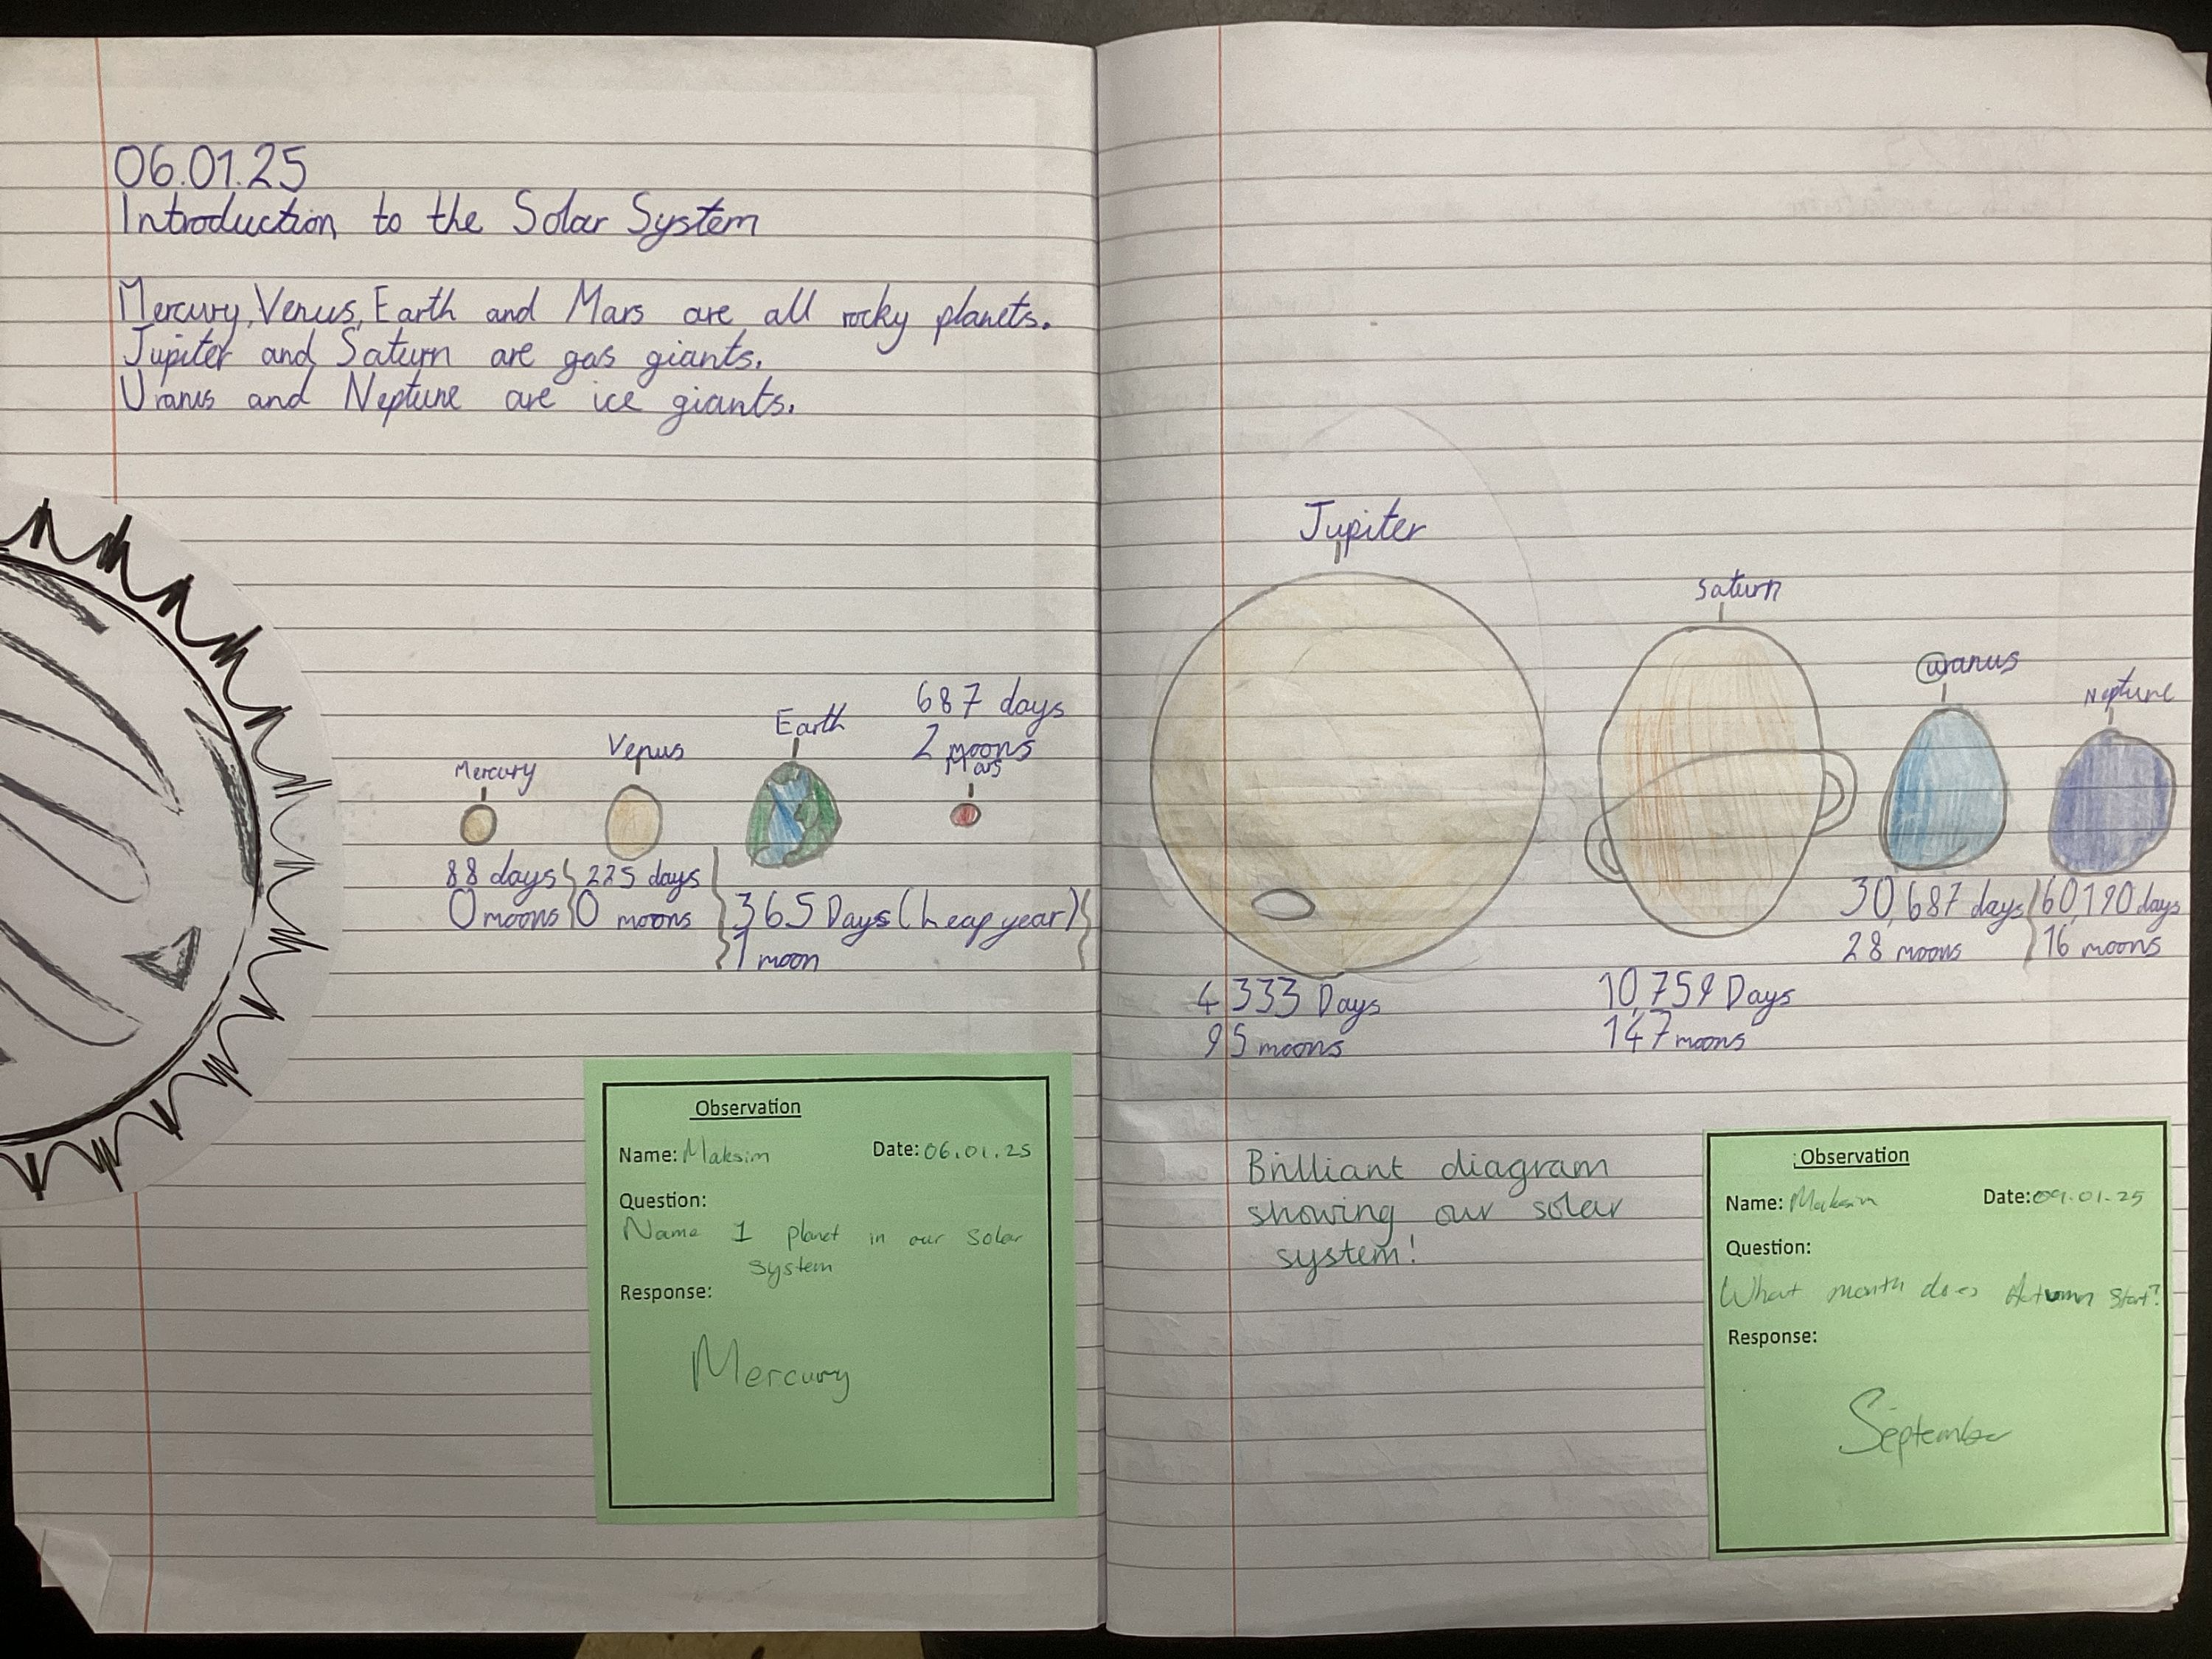 06.01.25
Introduction to the Solar System
Mercury, Venus, Earth and Mars are all rocky planets.
Jupiter and Saturn are gas giants.
Uranus and Neptune are ice giants.
Mercury
Venus
Earth
687 days
2 moons
Mars
88 days
0 moons
225 days
0 moons
365 Days (Leap year)
1 moon
Observation
Name: Maksim Date: 06.01.25
Question:
Name 1 planet in our solar
system
Response:
Mercury
Jupiter
Saturn
uranus
Neptune
4333 Days
95 moons
10,759 Days
147 moons
30,687 days
28 moons
60,190 days
16 moons
Brilliant diagram
showing our solar
system!
Observation
Name: Maksim Date: 09.01.25
Question:
What month does Autumn start?
Response:
September